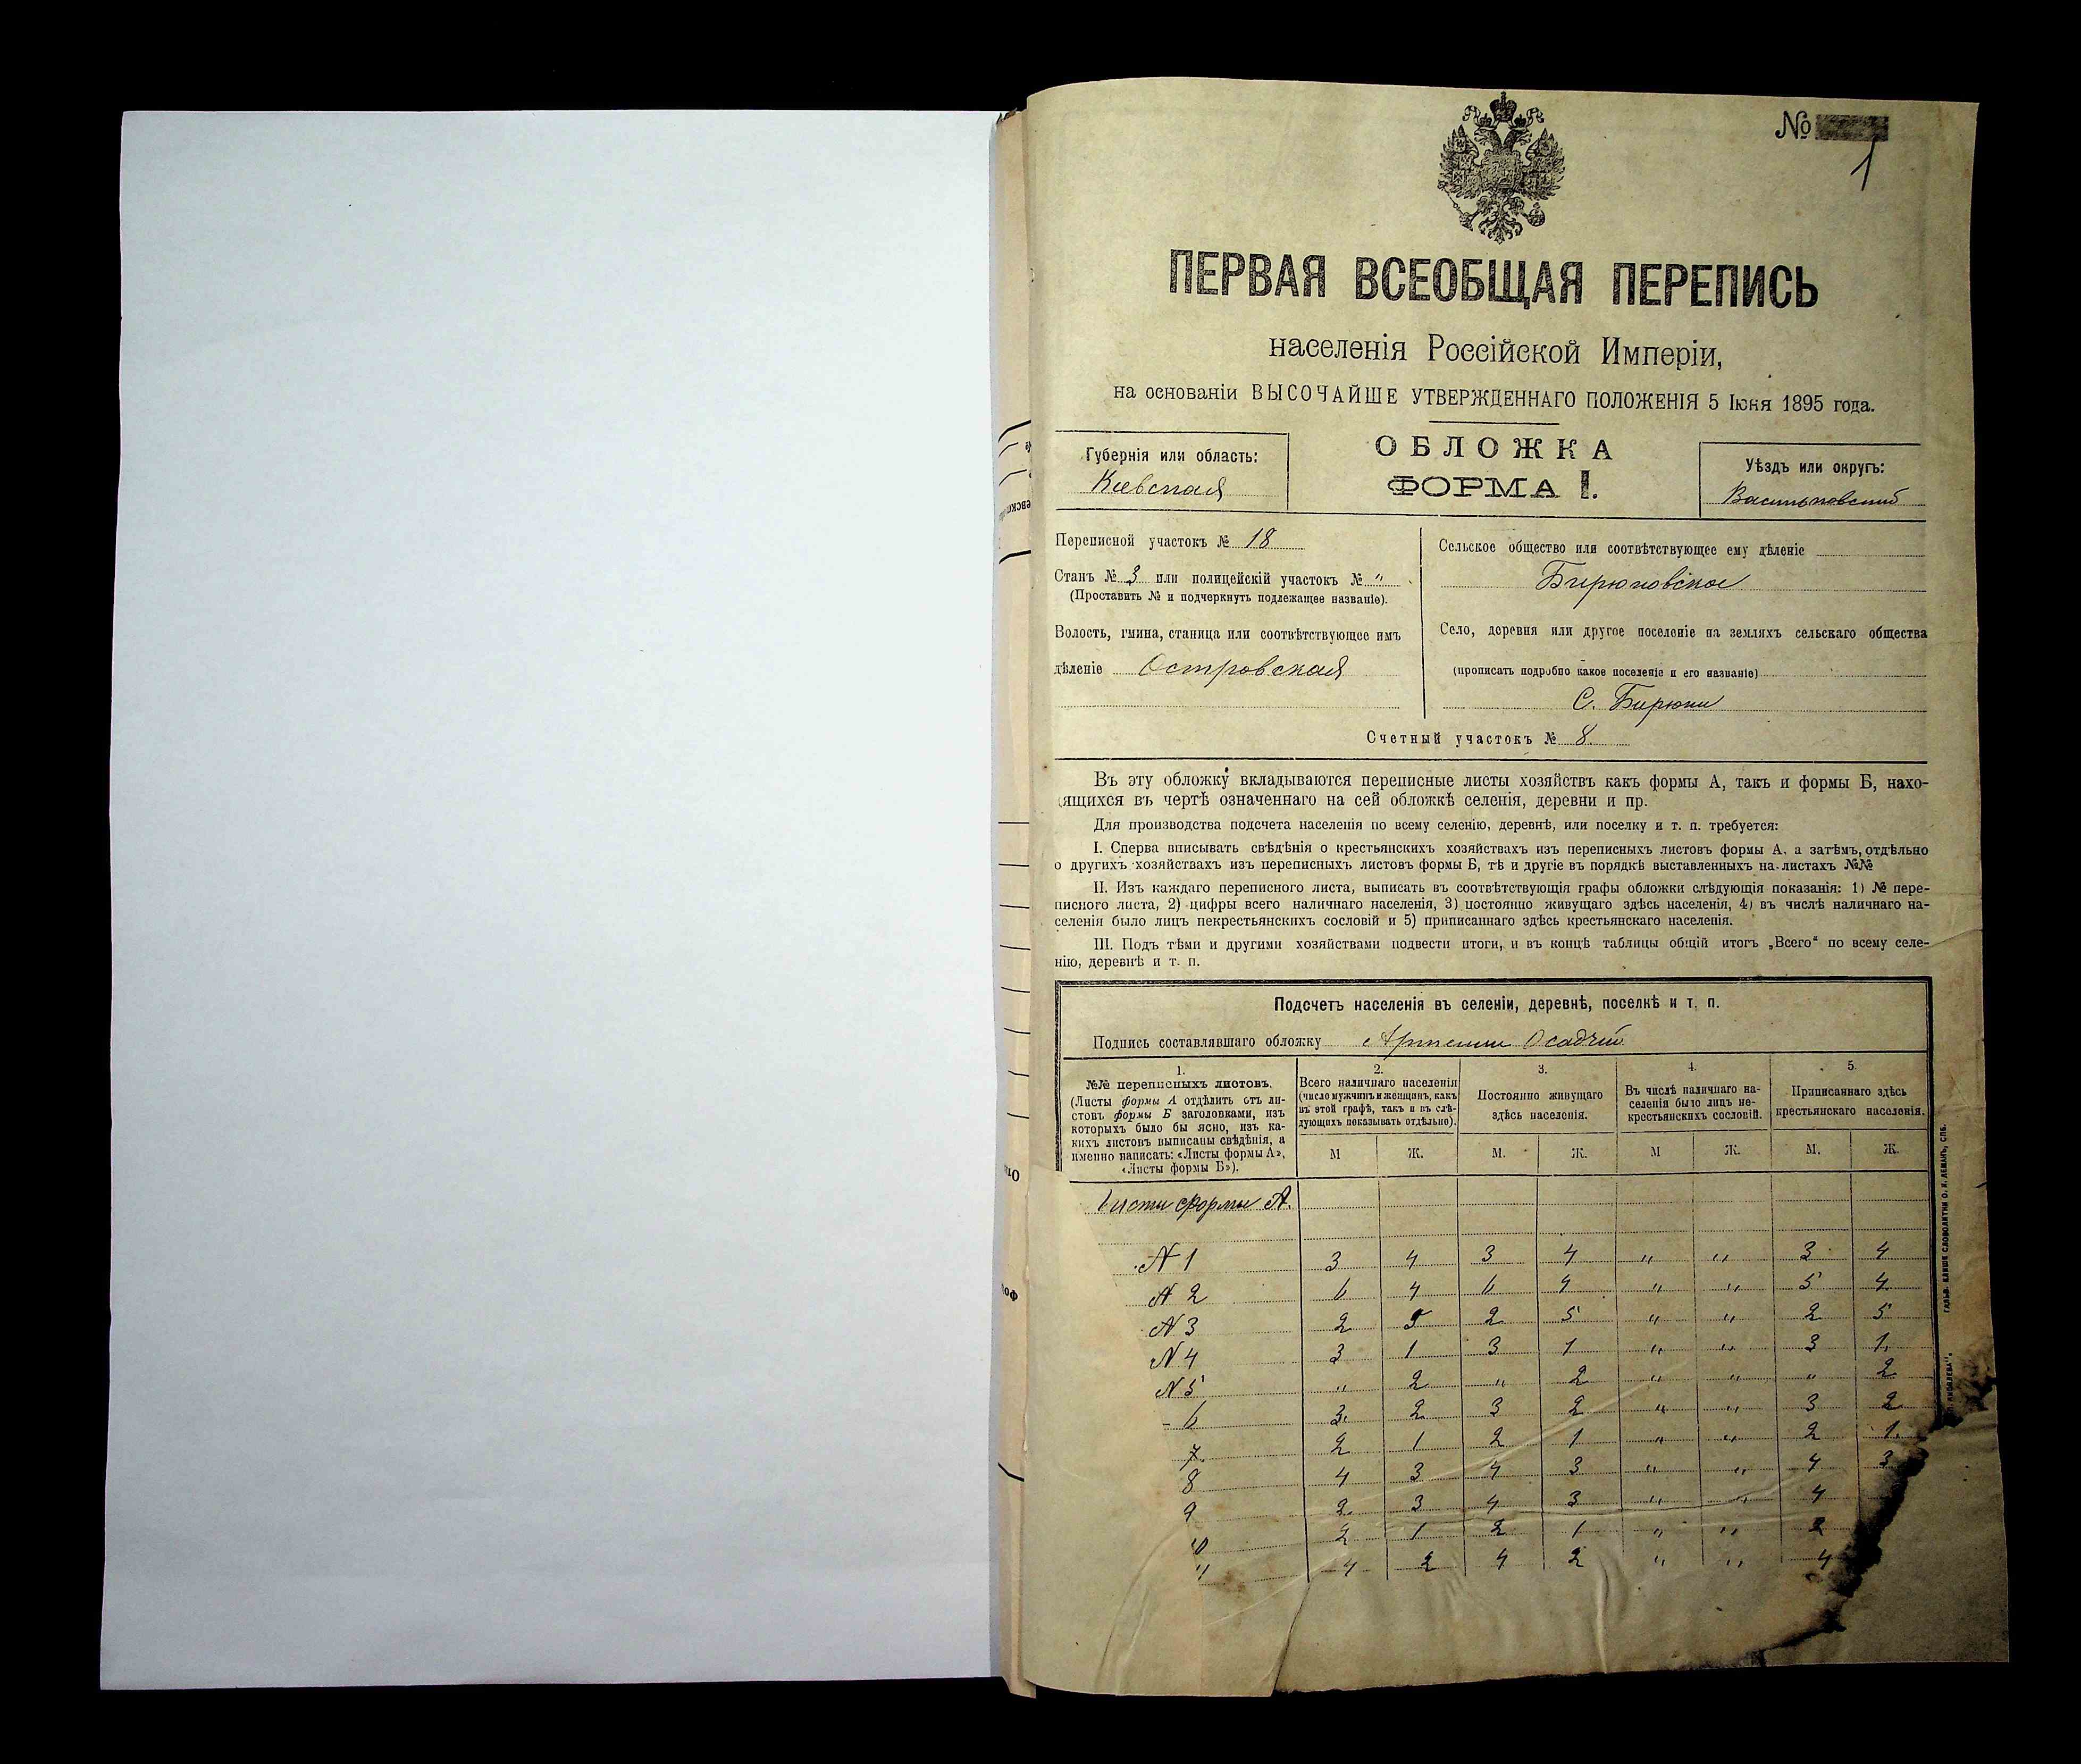 №
1
ПЕРВАЯ ВСЕОБЩАЯ ПЕРЕПИСЬ
населенія Россійской Имперіи,
на основаніи ВЫСОЧАЙШЕ УТВЕРЖДЕННАГО ПОЛОЖЕНІЯ 5 Іюня 1895 года.
Губернія или область:
Кіевская
ОБЛОЖКА
ФОРМА I.
Уѣздъ или округъ:
Васильковскій
Переписной участокъ № 18
Станъ № 3 или полицейскій участокъ № "
(Проставить № и подчеркнуть подлежащее названіе).
Волость, гмина, станица или соотвѣтствующее имъ
дѣленіе Островская
Сельское общество или соотвѣтствующее ему дѣленіе
Бирюковское
Село, деревня или другое поселеніе на земляхъ сельскаго общества
(прописать подробно какое поселеніе и его названіе)
С. Бирюки
Счетный участокъ № 8.
Въ эту обложку вкладываются переписные листы хозяйствъ какъ формы А, такъ и формы Б, нахо-
ящихся въ чертѣ означеннаго на сей обложкѣ селенія, деревни и пр.
Для производства подсчета населенія по всему селенію, деревнѣ, или поселку и т. п. требуется:
I. Сперва вписывать свѣдѣнія о крестьянскихъ хозяйствахъ изъ переписныхъ листовъ формы А. а затѣмъ, отдѣльно
о другихъ хозяйствахъ изъ переписныхъ листовъ формы Б, тѣ и другіе въ порядкѣ выставленныхъ на листахъ №№
II. Изъ каждаго переписного листа, выписать въ соотвѣтствующія графы обложки слѣдующія показанія: 1) № пере-
писного листа, 2) цифры всего наличнаго населенія, 3) постоянно живущаго здѣсь населенія, 4) въ числѣ наличнаго на-
селенія было лицъ некрестьянскихъ сословій и 5) приписаннаго здѣсь крестьянскаго населенія.
III. Подъ тѣми и другими хозяйствами подвести итоги, и въ концѣ таблицы общій итогъ „Всего“ по всему селе-
нію, деревнѣ и т. п.
Подсчетъ населенія въ селеніи, деревнѣ, поселкѣ и т. п.
Подпись составлявшаго обложку Осадчій
1.
№№ переписныхъ листовъ.
(Листы формы А отдѣлить отъ ли-
стовъ формы Б заголовками, изъ
которыхъ было бы ясно, изъ ка-
кихъ листовъ выписаны свѣдѣнія, а
именно написать: «Листы формы А»,
«Листы формы Б»).
2.
Всего наличнаго населенія
(число мужчинъ и женщинъ, какъ
въ этой графѣ, такъ и въ слѣ-
дующихъ показывать отдѣльно).
3.
Постоянно живущаго
здѣсь населенія.
4.
Въ числѣ наличнаго на-
селенія было лицъ не-
крестьянскихъ сословій.
5.
Приписаннаго здѣсь
крестьянскаго населенія.
М Ж. М. Ж. М Ж. М. Ж.
Листы формы А.
№ 1 3 4 3 4 " " 3 4
№ 2 6 4 6 4 " " 5 4
№ 3 2 5 2 5 " " 2 5
№ 4 3 1 3 1 " " 3 1.
№ 5 " 2 " 2 " " " 2
- 6 3. 2 3 2 " " 3 2
7. 2 1 2 1 " " 2 1.
8 4 3 4 3 " " 4 3
9 2. 3 4 3 " " 4
10 2 1 2 1 " " 2
11 4 2 4 2 " " 4
ГАЛЬВ. КЛИШЕ СЛОВОЛИТНИ О. И. ЛЕМАНЪ, СПБ.